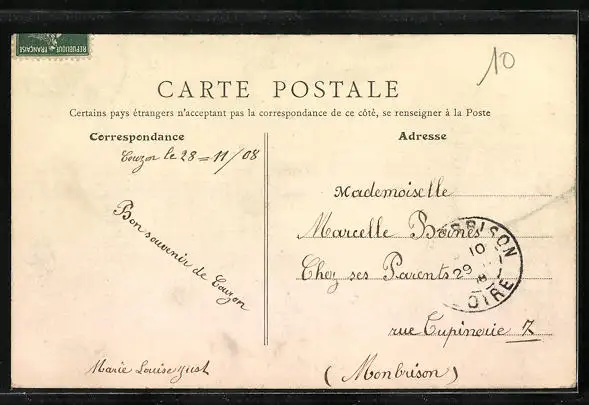 REPUBLIQUE FRANÇAISE
10
CARTE POSTALE
Certains pays étrangers n'acceptant pas la correspondance de ce côté, se renseigner à la Poste
Correspondance
Couzon le 28=11/08
Bon souvenir de Couzon
Marie Louise
Adresse
Mademoiselle
Marcelle
Chez ses Parents
rue Tupinerie 7
(Montbrison)
BRISON
10
29
LOIRE